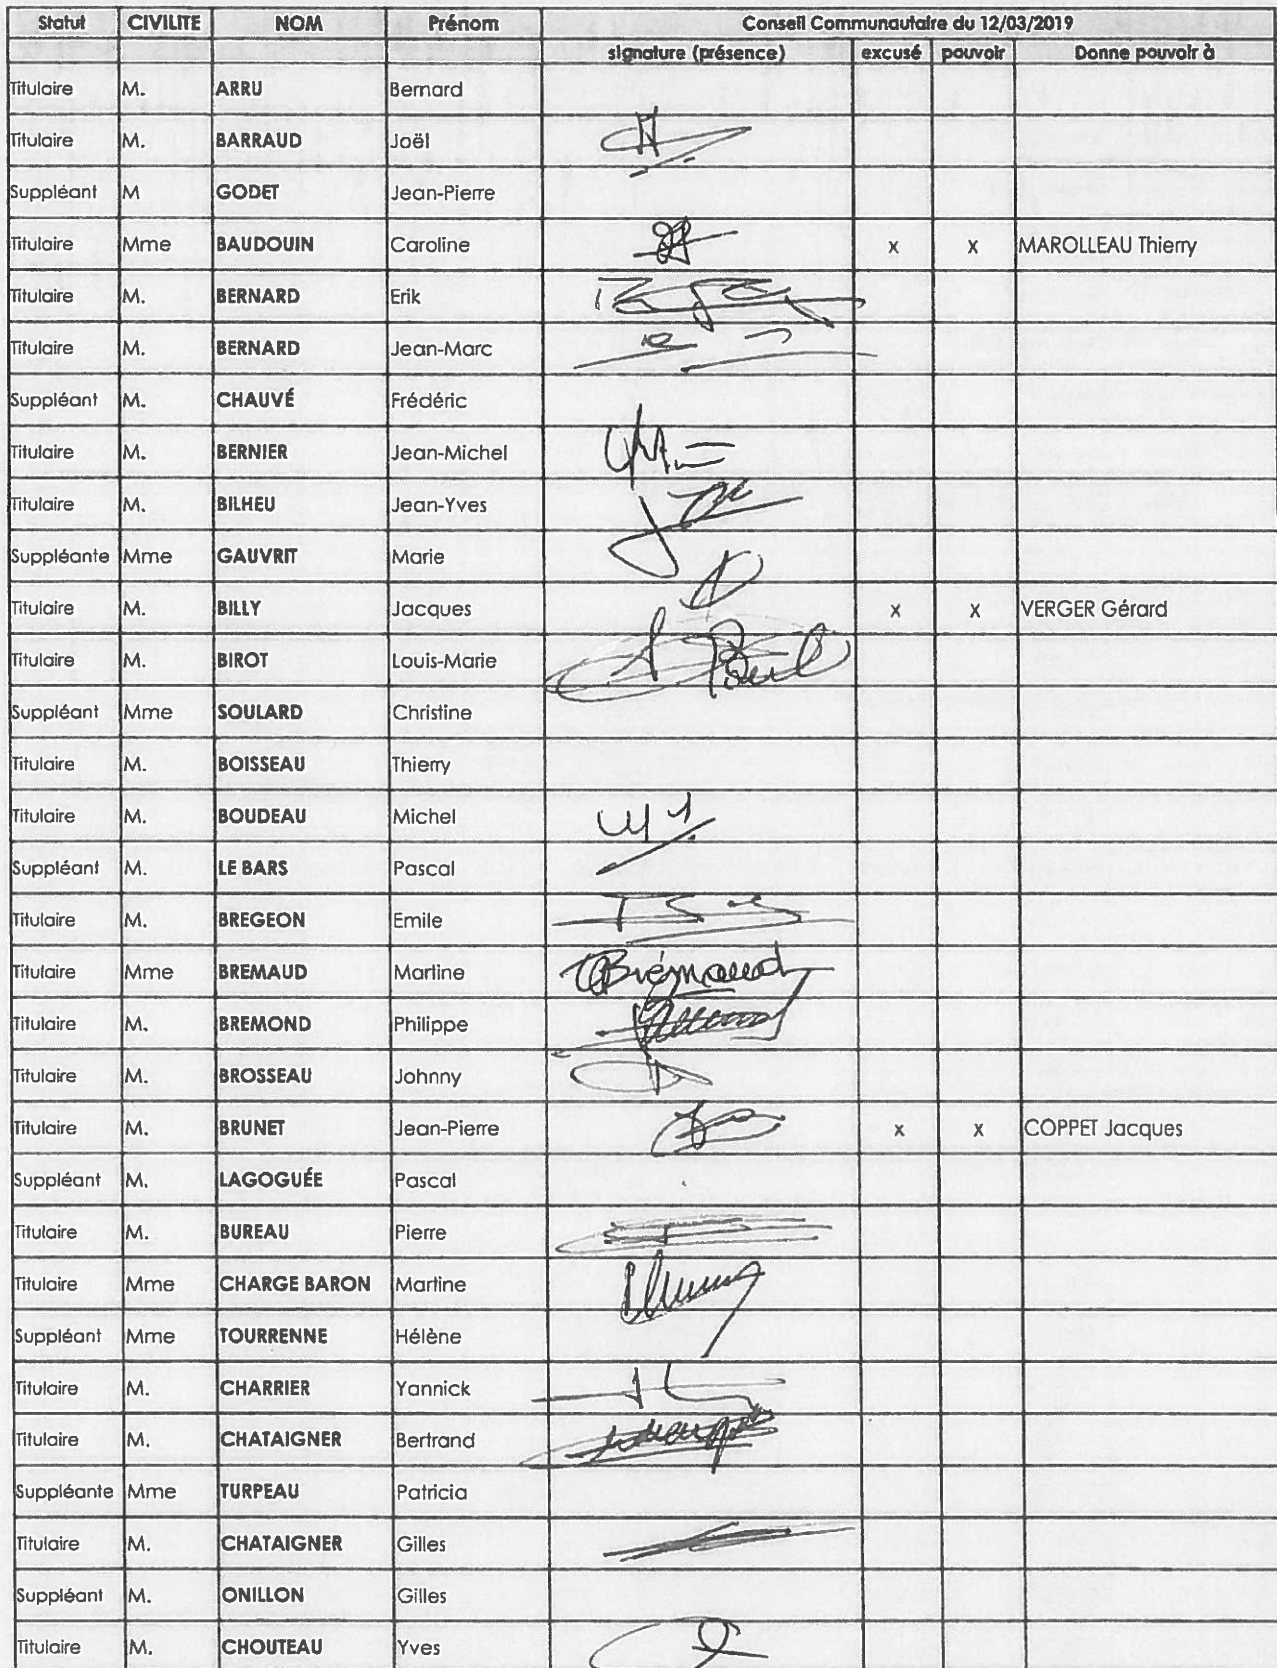 Statut CIVILITE NOM Prénom Conseil Communautaire du 12/03/2019
signature (présence) excusé pouvoir Donne pouvoir à
Titulaire M. ARRU Bernard
Titulaire M. BARRAUD Joël
Suppléant M GODET Jean-Pierre
Titulaire Mme BAUDOUIN Caroline x x MAROLLEAU Thierry
Titulaire M. BERNARD Erik
Titulaire M. BERNARD Jean-Marc
Suppléant M. CHAUVÉ Frédéric
Titulaire M. BERNIER Jean-Michel
Titulaire M. BILHEU Jean-Yves
Suppléante Mme GAUVRIT Marie
Titulaire M. BILLY Jacques x x VERGER Gérard
Titulaire M. BIROT Louis-Marie
Suppléant Mme SOULARD Christine
Titulaire M. BOISSEAU Thierry
Titulaire M. BOUDEAU Michel
Suppléant M. LE BARS Pascal
Titulaire M. BREGEON Emile
Titulaire Mme BREMAUD Martine Brémaud
Titulaire M. BREMOND Philippe
Titulaire M. BROSSEAU Johnny
Titulaire M. BRUNET Jean-Pierre x x COPPET Jacques
Suppléant M. LAGOGUÉE Pascal
Titulaire M. BUREAU Pierre
Titulaire Mme CHARGE BARON Martine
Suppléant Mme TOURRENNE Hélène
Titulaire M. CHARRIER Yannick
Titulaire M. CHATAIGNER Bertrand
Suppléante Mme TURPEAU Patricia
Titulaire M. CHATAIGNER Gilles
Suppléant M. ONILLON Gilles
Titulaire M. CHOUTEAU Yves